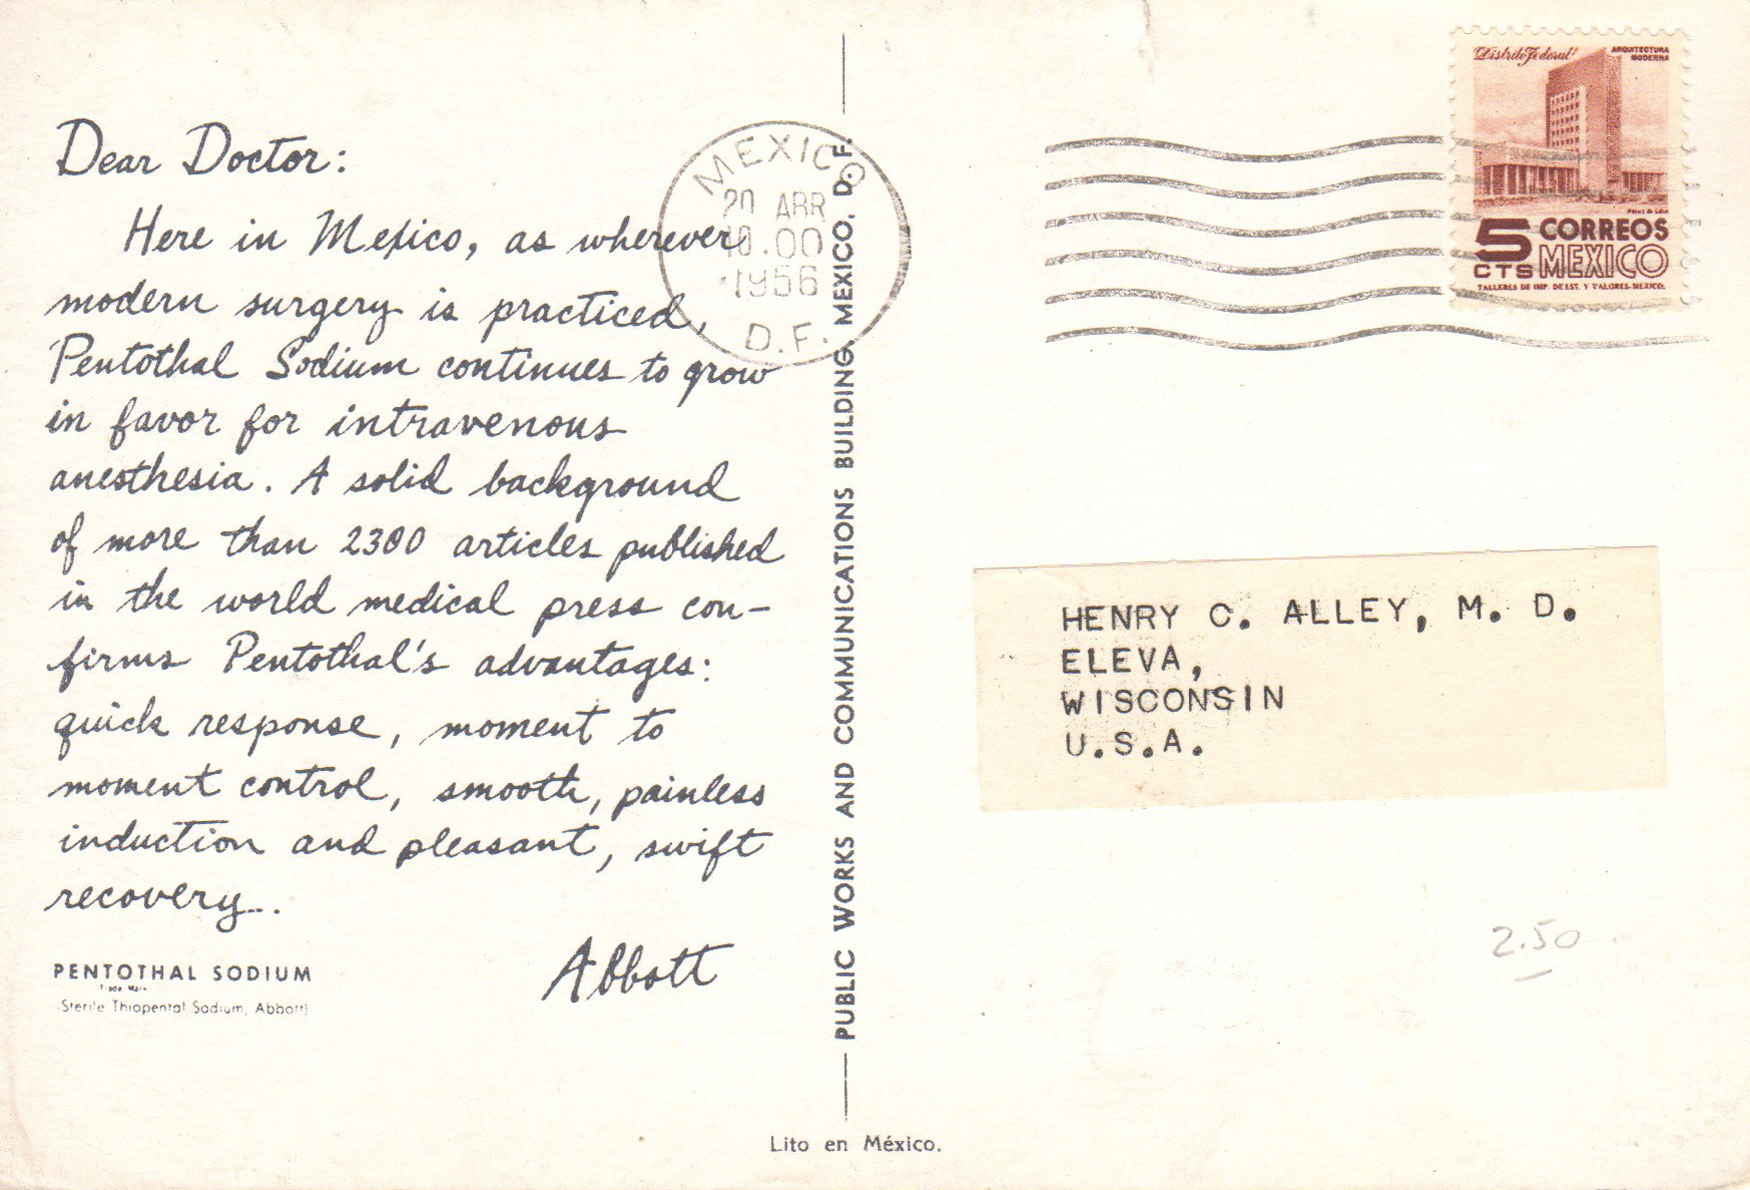 Dear Doctor:
Here in Mexico, as wherever
modern surgery is practiced,
Pentothal Sodium continues to grow
in favor for intravenous
anesthesia. A solid background
of more than 2300 articles published
in the world medical press con-
firms Pentothal's advantages:
quick response, moment to
moment control, smooth, painless
induction and pleasant, swift
recovery..
Abbott
PENTOTHAL SODIUM
Trade Mark
(Sterile Thiopental Sodium, Abbott)
PUBLIC WORKS AND COMMUNICATIONS BUILDING, MEXICO, D. F.
Lito en México.
MEXICO
20 ABR
10.00
1956
D.F.
Distrito Federal
ARQUITECTURA
MODERNA
5 CTS
CORREOS
MEXICO
TALLERES DE IMP. DE EST. Y VALORES-MEXICO.
HENRY C. ALLEY, M. D.
ELEVA,
WISCONSIN
U.S.A.
2.50